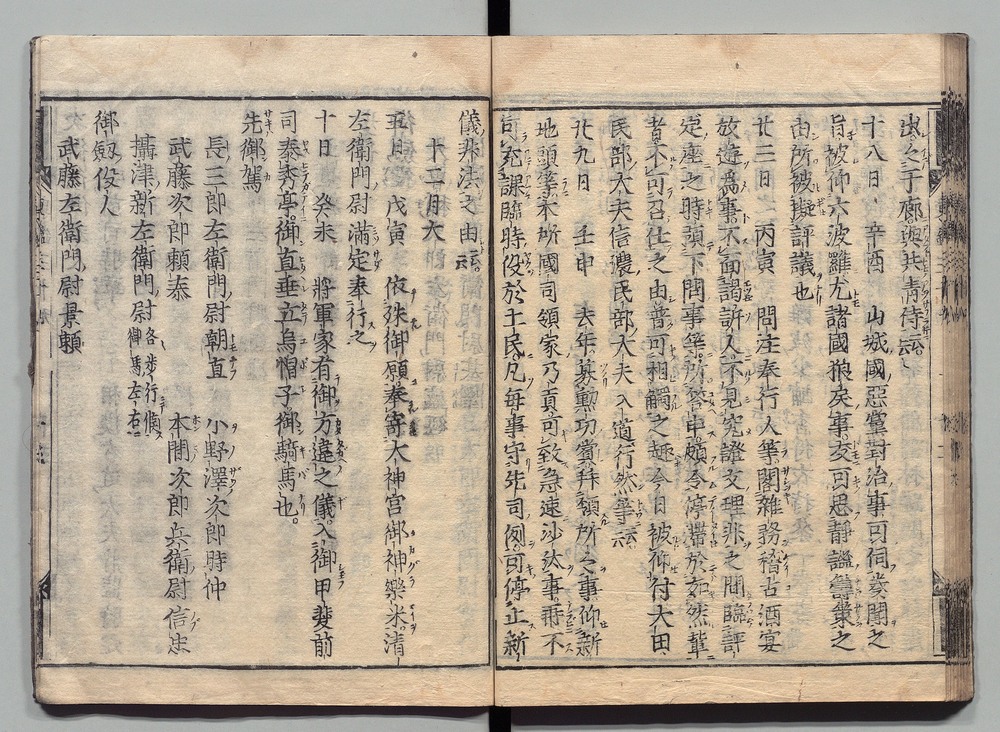 出之于廊與共青侍云云
十八日 辛酉 山城國惡黨對治事可伺發聞之
旨被仰六波羅尤諸國狼戾事友可思靜謐籌策之
由所被擬評議也
廿三日 丙寅 問注奉行人等閣雜務稽古酒宴
放遊爲事不面謁訴人不見究證文理非之間臨評
定座之時預下問事等所答申頗令停滯於如然輩
者不可召仕之由普可相觸之趣今日被仰付大田
民部大夫信濃民部大夫入道行然等云云
廿九日 壬申 去年募勳功賞拜領所々事仰新
地頭等本所國司領家乃貢可致急速沙汰事兼不
可宛課臨時役於土民凡每事守先司例可停止新
儀非法之由云云
十二月大
五日 戊寅 依殊御願奉寄大神宮御神樂米清
左衛門尉滿定奉行之
十日 癸未 將軍家有御方違之儀入御甲斐前
司泰秀亭御直垂立烏帽子御騎馬也
先御駕
長三郎左衛門尉朝直 小野澤次郎時仲
武藤次郎賴泰 本間次郎兵衛尉信忠
攝津新左衛門尉 各步行候御馬左右
御劔役人
武藤左衛門尉景賴